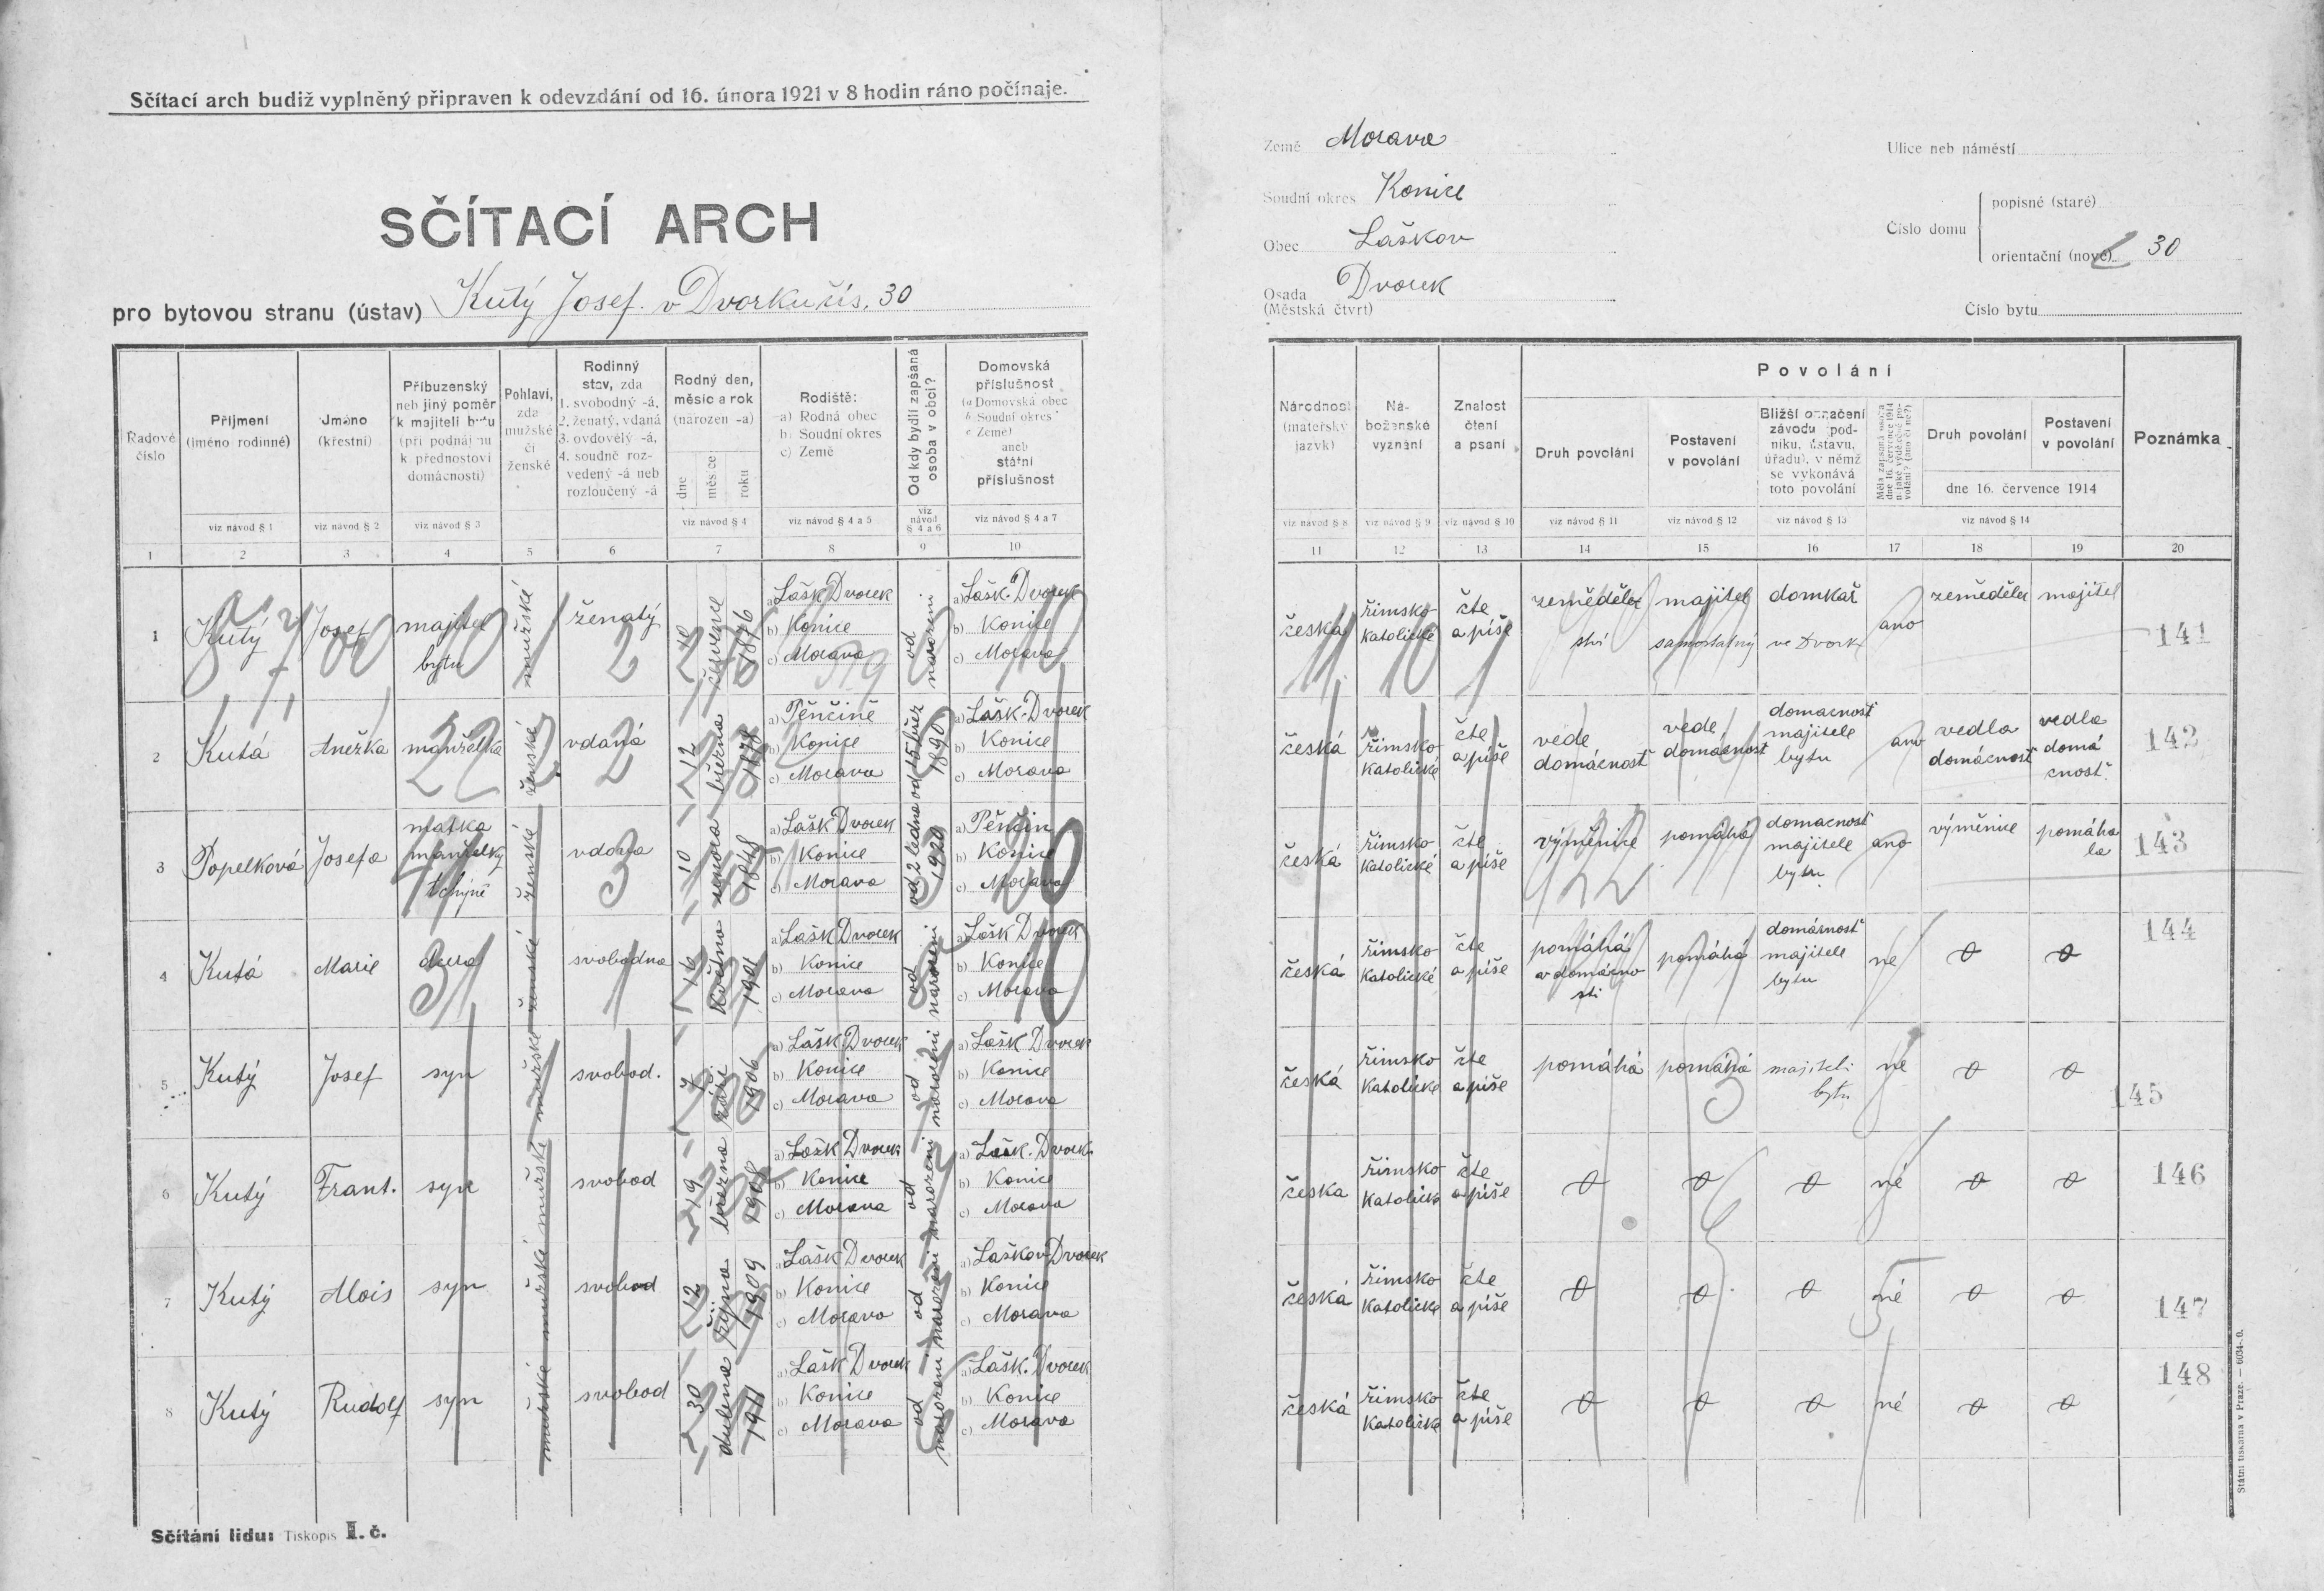 Sčítací arch budiž vyplněný připraven k odevzdání od 16. února 1921 v 8 hodin ráno počínaje.
SČÍTACÍ ARCH
pro bytovou stranu (ústav) Kutý Josef v Dvorku čís. 30
Země Morava
Soudní okres Konice
Obec Laškov
Osada Dvorek
(Městská čtvrť)
Ulice neb náměstí
Číslo domu
popisné (staré)
orientační (nové) 30
Číslo bytu
Řadové číslo
Příjmení (jméno rodinné)
Jméno (křestní)
Příbuzenský neb jiný poměr k majiteli bytu (při podnájmu k přednostovi domácnosti)
Pohlaví, zda mužské či ženské
Rodinný stav, zda
1. svobodný -á,
2. ženatý, vdaná
3. ovdovělý -á,
4. soudně rozvedený -á neb rozloučený -á
Rodný den, měsíc a rok (narozen -a)
dne
měsíce
roku
Rodiště:
a) Rodná obec
b) Soudní okres
c) Země
Od kdy bydlí zapsaná osoba v obci?
Domovská příslušnost
(a Domovská obec
b Soudní okres
c Země)
aneb
státní příslušnost
viz návod § 1
viz návod § 2
viz návod § 3
viz návod § 4
viz návod § 4 a 5
viz návod § 4 a 6
viz návod § 4 a 7
1 2 3 4 5 6 7 8 9 10
Národnost (mateřský jazyk)
Náboženské vyznání
Znalost čtení a psaní
Povolání
Druh povolání
Postavení v povolání
Bližší označení závodu (podniku, ústavu, úřadu), v němž se vykonává toto povolání
Měla zapsaná osoba dne 16. července 1914 nějaké výdělečné povolání? (ano či ne?)
Druh povolání
Postavení v povolání
dne 16. července 1914
Poznámka
viz návod § 8
viz návod § 9
viz návod § 10
viz návod § 11
viz návod § 12
viz návod § 13
viz návod § 14
11 12 13 14 15 16 17 18 19 20
1 Kutý Josef majitel bytu mužské ženatý července 1876 a) Lašk. Dvorek b) Konice c) Morava od narození a) Lašk. Dvorek b) Konice c) Morava
česká římsko katolické čte a píše zemědělství majitel samostatný domkař ve Dvorku ano zemědělec majitel 141
2 Kutá Anežka manželka ženské vdaná 12 března 1878 a) Pěnčině b) Konice c) Morava 1890 a) Lašk. Dvorek b) Konice c) Morava
česká římsko katolické čte a píše vede domácnost vede domácnost domacnost majitele bytu ano vedla domácnost vedla domácnost 142
3 Popelková Josefa matka manželky tchýně ženské vdova 10 února 1848 a) Lašk Dvorek b) Konice c) Morava od 2 ledna 1920 a) Pěnčin b) Konice c) Morava
česká římsko katolické čte a píše výměnice pomáhá domacnost majitele bytu ano výměnice pomáhala 143
4 Kutá Marie dcera ženské svobodna 16 května 1901 a) Lašk Dvorek b) Konice c) Morava od narození a) Lašk Dvorek b) Konice c) Morava
česká římsko katolické čte a píše pomáhá v domácnosti pomáhá domácnost majitele bytu né 144
5 Kutý Josef syn mužské svobod. 7 září 1906 a) Lašk. Dvorek b) Konice c) Morava od narození a) Lašk Dvorek b) Konice c) Morava
česká římsko katolické čte a píše pomáhá pomáhá majiteli bytu né 145
6 Kutý Frant. syn mužské svobod 19 března 1908 a) Lašk Dvorek b) Konice c) Morava od narození a) Lašk. Dvorek b) Konice c) Morava
česka římsko katolické čte a píše né 146
7 Kutý Alois syn mužské svobod 12 října 1909 a) Lašk Dvorek b) Konice c) Morava od narození a) Laškov Dvorek b) Konice c) Morava
česká římsko katolické čte a píše né 147
8 Kutý Rudolf syn mužské svobod 30 dubna 1911 a) Lašk Dvorek b) Konice c) Morava od narození a) Lašk. Dvorek b) Konice c) Morava
česká římsko katolické čte a píše né 148
Sčítání lidu: Tiskopis I. č.
Státní tiskárna v Praze. — 6034-0.